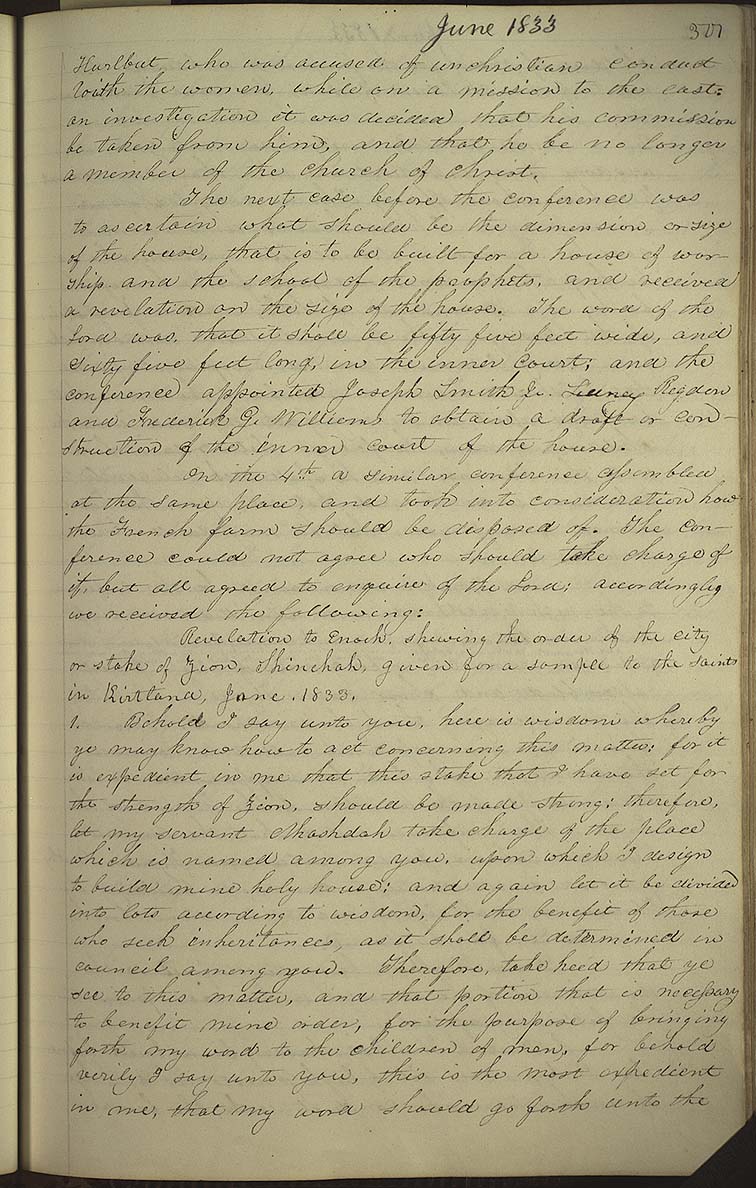 June 1833
301
Hurlbut, who was accused of unchristian conduct
with the women, while on a mission to the east:
on investigation it was decided that his commission
be taken from him, and that he be no longer
a member of the church of Christ.
The next case before the conference was
to ascertain what should be the dimension or size
of the house, that is to be built for a house of wor-
ship and the school of the prophets, and received
a revelation on the size of the house. The word of the
Lord was, that it shall be fifty five feet wide, and
sixty five feet long, in the inner court; and the
conference appointed Joseph Smith Jr. Rigdon
and Frederick G. Williams to obtain a draft or con-
struction of the inner court of the house.
On the 4th a similar conference assembled
at the same place, and took into consideration how
the French farm should be disposed of. The con-
ference could not agree who should take charge of
it, but all agreed to enquire of the Lord; accordingly
we received the following:
Revelation to Enoch, shewing the order of the city
or stake of Zion, Shinehah, given for a sample to the saints
in Kirtland, June. 1833.
1. Behold I say unto you, here is wisdom whereby
ye may know how to act concerning this matter; for it
is expedient in me that this stake that I have set for
the strength of Zion, should be made strong; therefore,
let my servant Ahashdah take charge of the place
which is named among you, upon which I design
to build mine holy house; and again let it be divided
into lots according to wisdom, for the benefit of those
who seek inheritances, as it shall be determined in
council among you. Therefore, take heed that ye
see to this matter, and that portion that is necessary
to benefit mine order, for the purpose of bringing
forth my word to the children of men, for behold
verily I say unto you, this is the most expedient
in me, that my word should go forth unto the